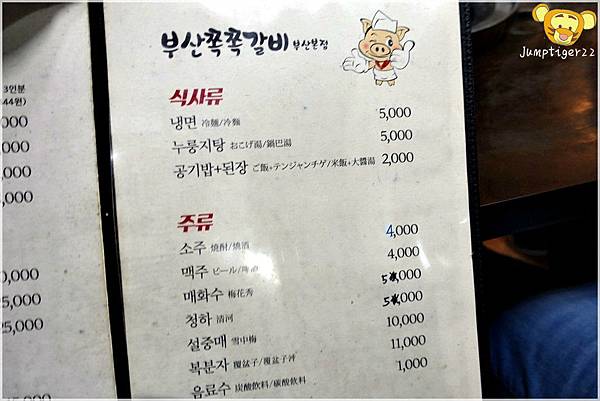 부산쪽쪽갈비 부산본점
Jumptiger22
3인분
식사류
냉면 冷麺/冷麵 5,000
누룽지탕 おこげ湯/鍋巴湯 5,000
공기밥+된장 ご飯+テンジャンチゲ/米飯+大醬湯 2,000
주류
소주 焼酎/燒酒 4,000
맥주 ビール/啤酒 4,000
매화수 梅花秀 5,000
청하 清河 5,000
설중매 雪中梅 10,000
복분자 覆盆子/覆盆子汁 11,000
음료수 炭酸飲料/碳酸飲料 1,000
,000
,000
,000
0,000
25,000
25,000